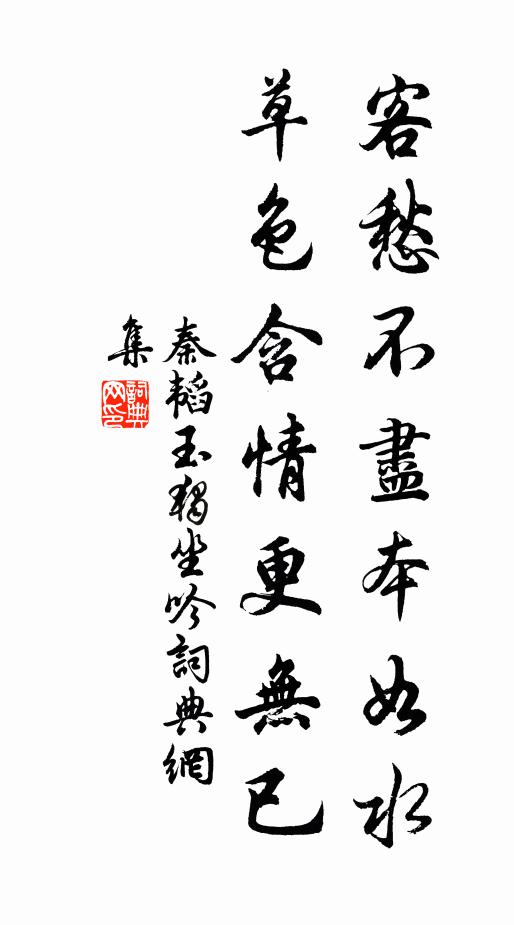 客愁不盡本如水
草色含情更無已
秦韜玉獨坐吟詞典網
集
詞典網印